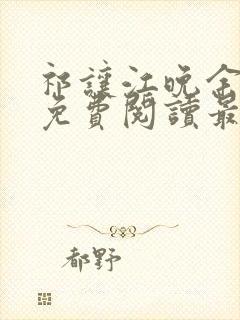 祁讓江晚全
免費閱讀最
都野